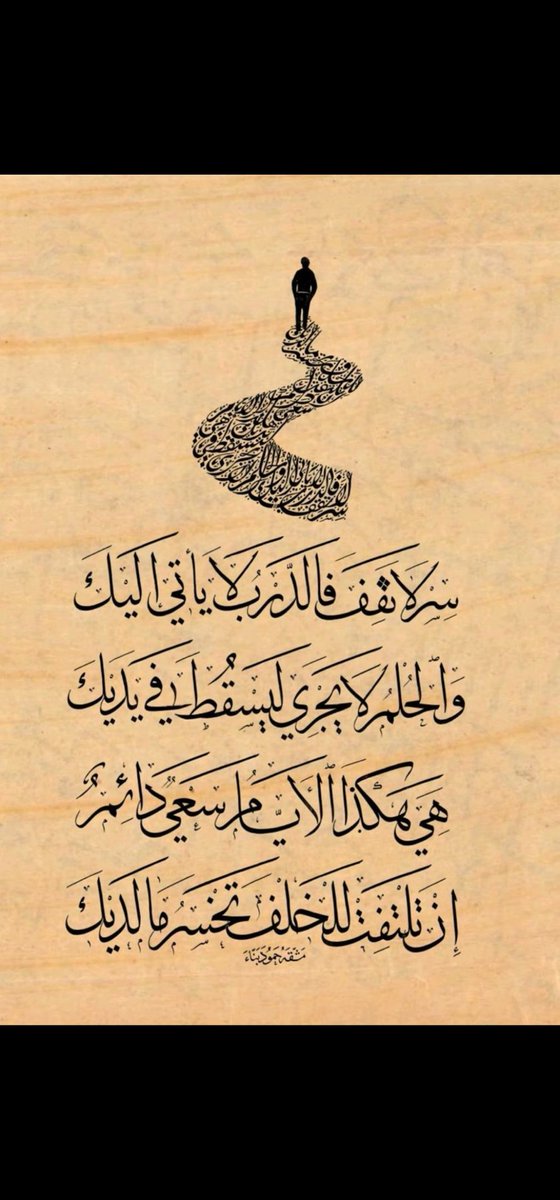 سِرْ لَا تَقِفْ فَالدَّرْبُ لَا يَأتي اليكَ
وَالحُلمُ لَا يَجْرِي لِيَسْقُطَ في يَدَيكَ
هِي هَكَذَا الأيَّامُ سَعَيٌ دَائِمٌ
إنْ تَلتَفِتْ لِلخَلفِ تَخْسَرُ مَا لَدَيكَ